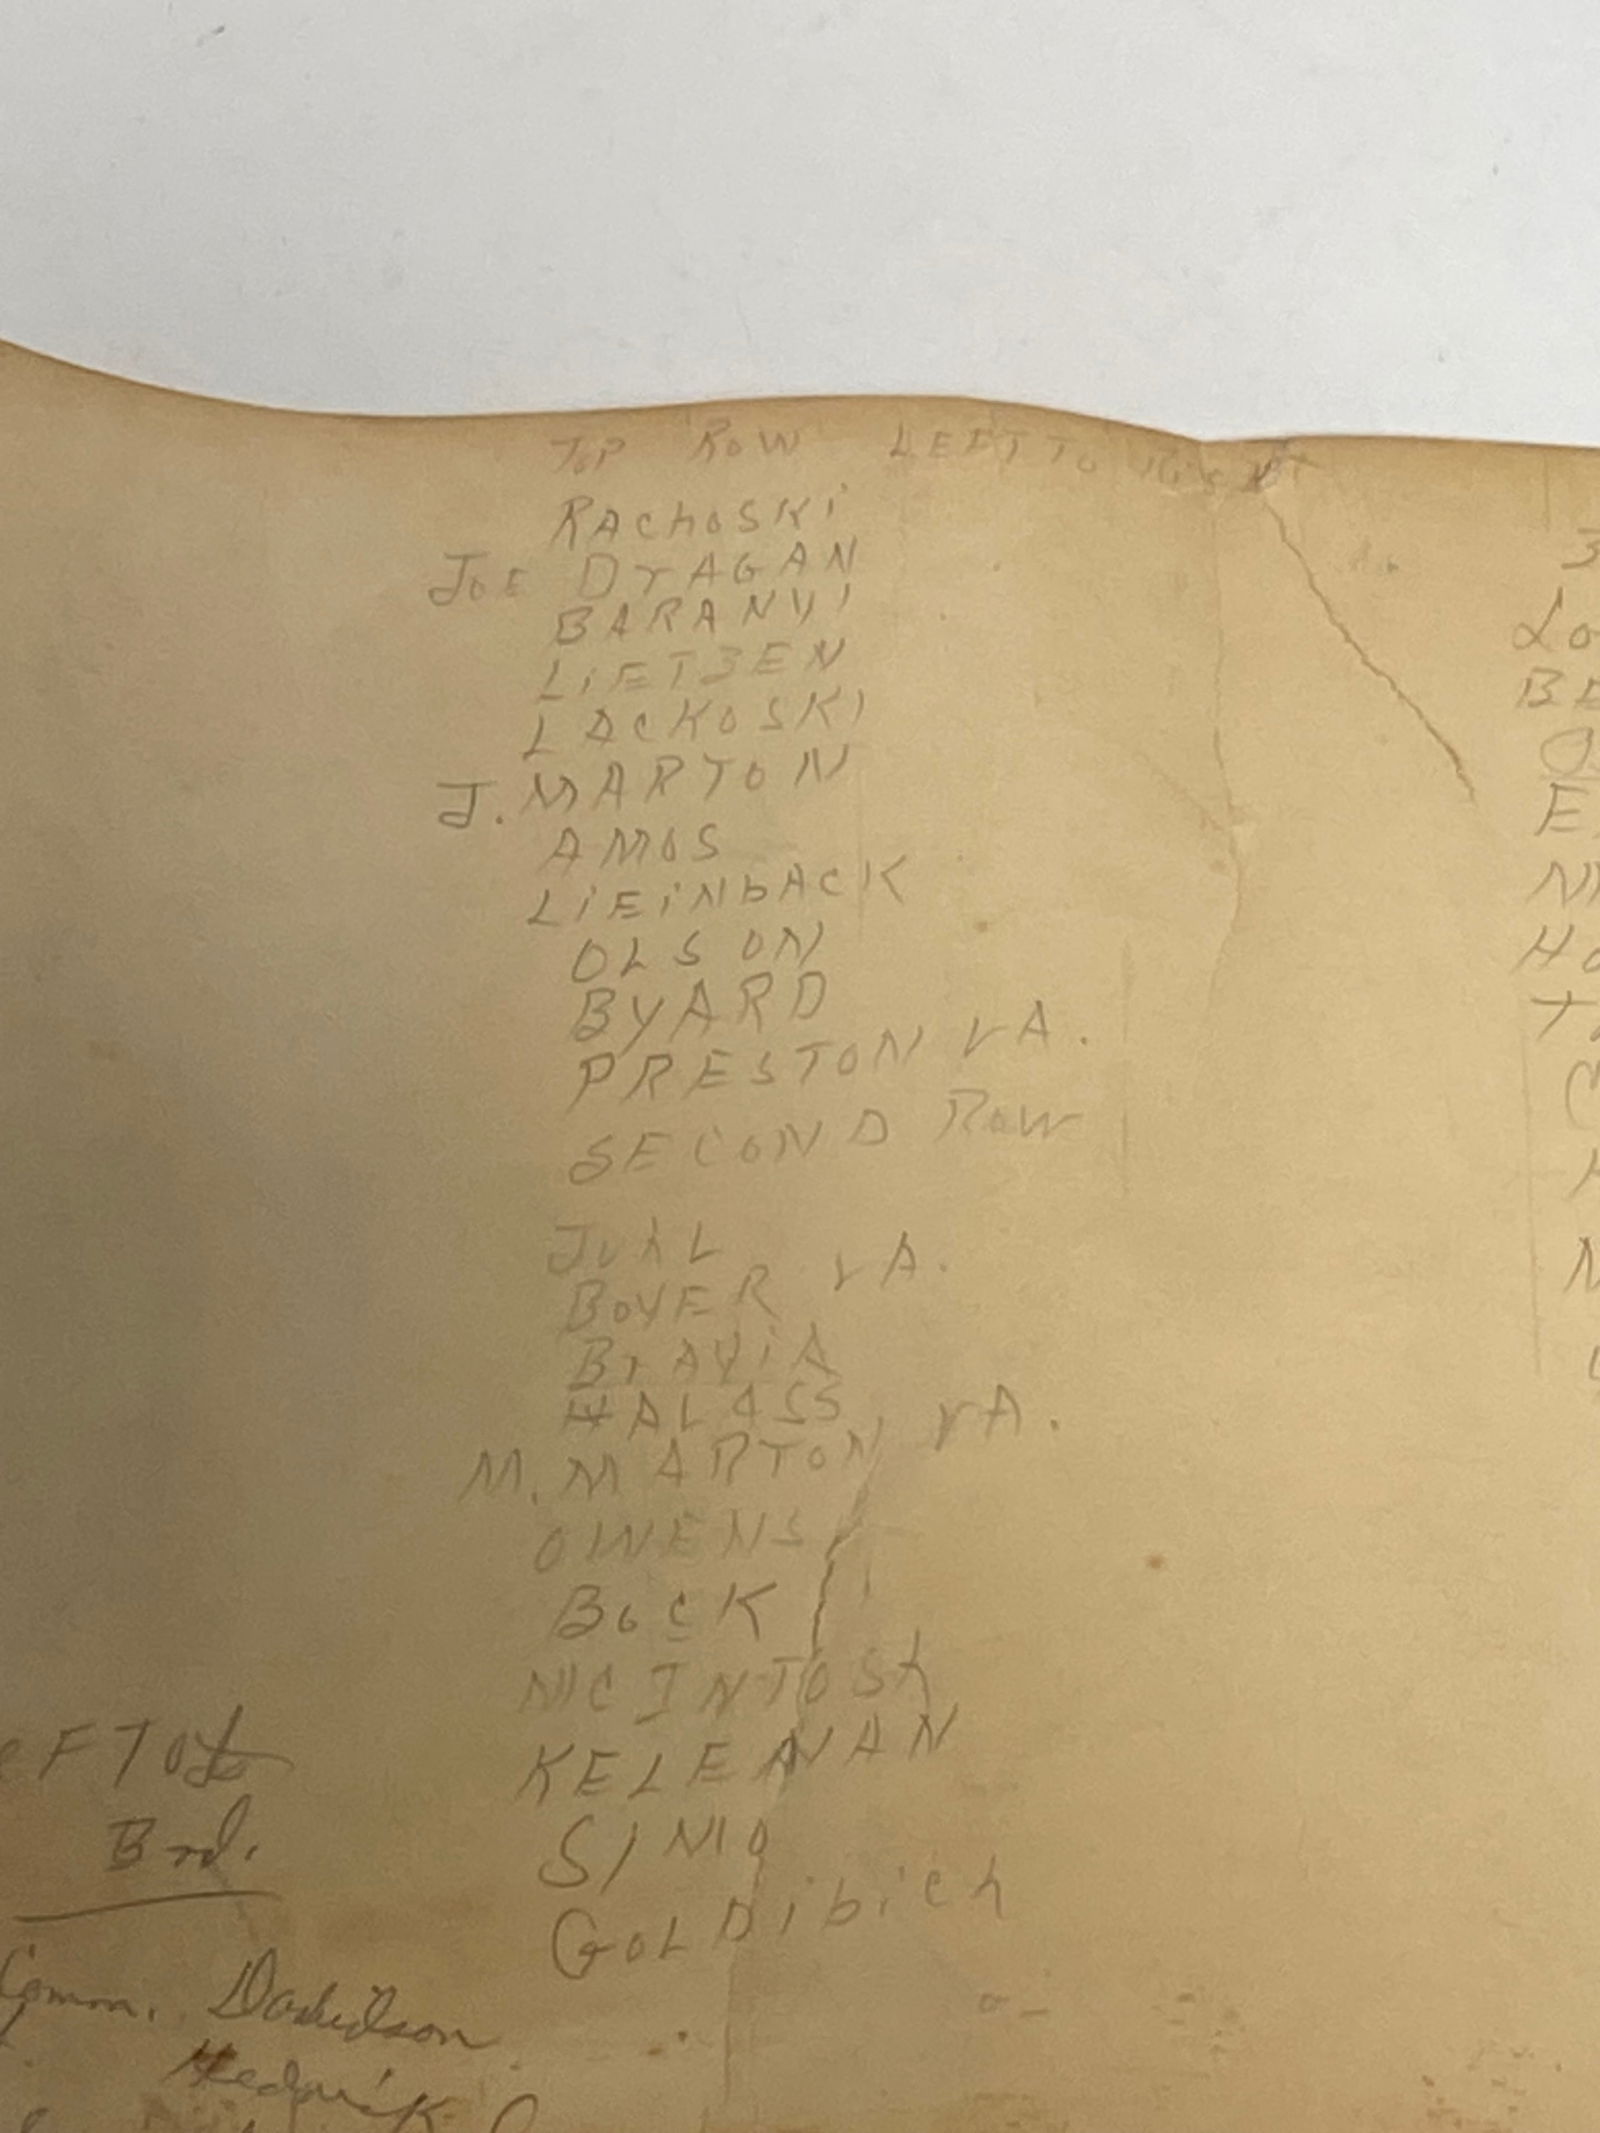 TOP ROW LEFT TO RIGHT
RAchoSKi
JOE DrAGAN
BARANYi
LiETZEN
LACKOSKI
J. MARTON
AMOS
LiEiNbACK
OLSON
ByARD
PRESTON VA.
SECOND ROW
JUhL
BOYER VA.
BrAViA
HALASS
M. MARTON VA.
OWENS
BocK
MC INTOSh
KELEMAN
SIMO
GOLDibich
Brd.
Comm. Davidson
Hedrick
3
Lo
BE
E
H